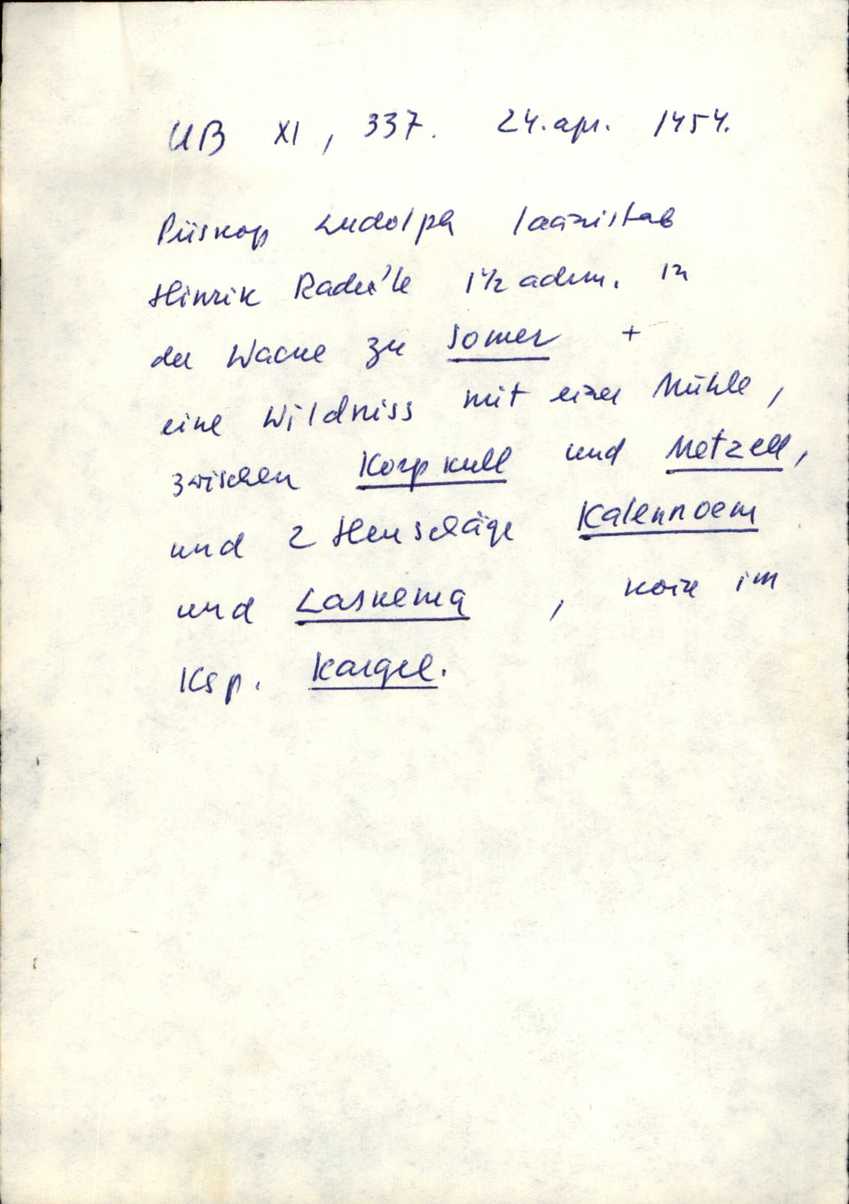 UB XI, 337. 24. apr. 1454.
Piiskop Ludolph läänistab
Hinrik 1½ adrm. in
der Wacke zu Somer +
eine Wildniss mit einer Mühle,
zwischen Korpkull und Metzell,
und 2 Heuschläge Kalennoem
und Laskema, kõik im
Ksp. Kargel.